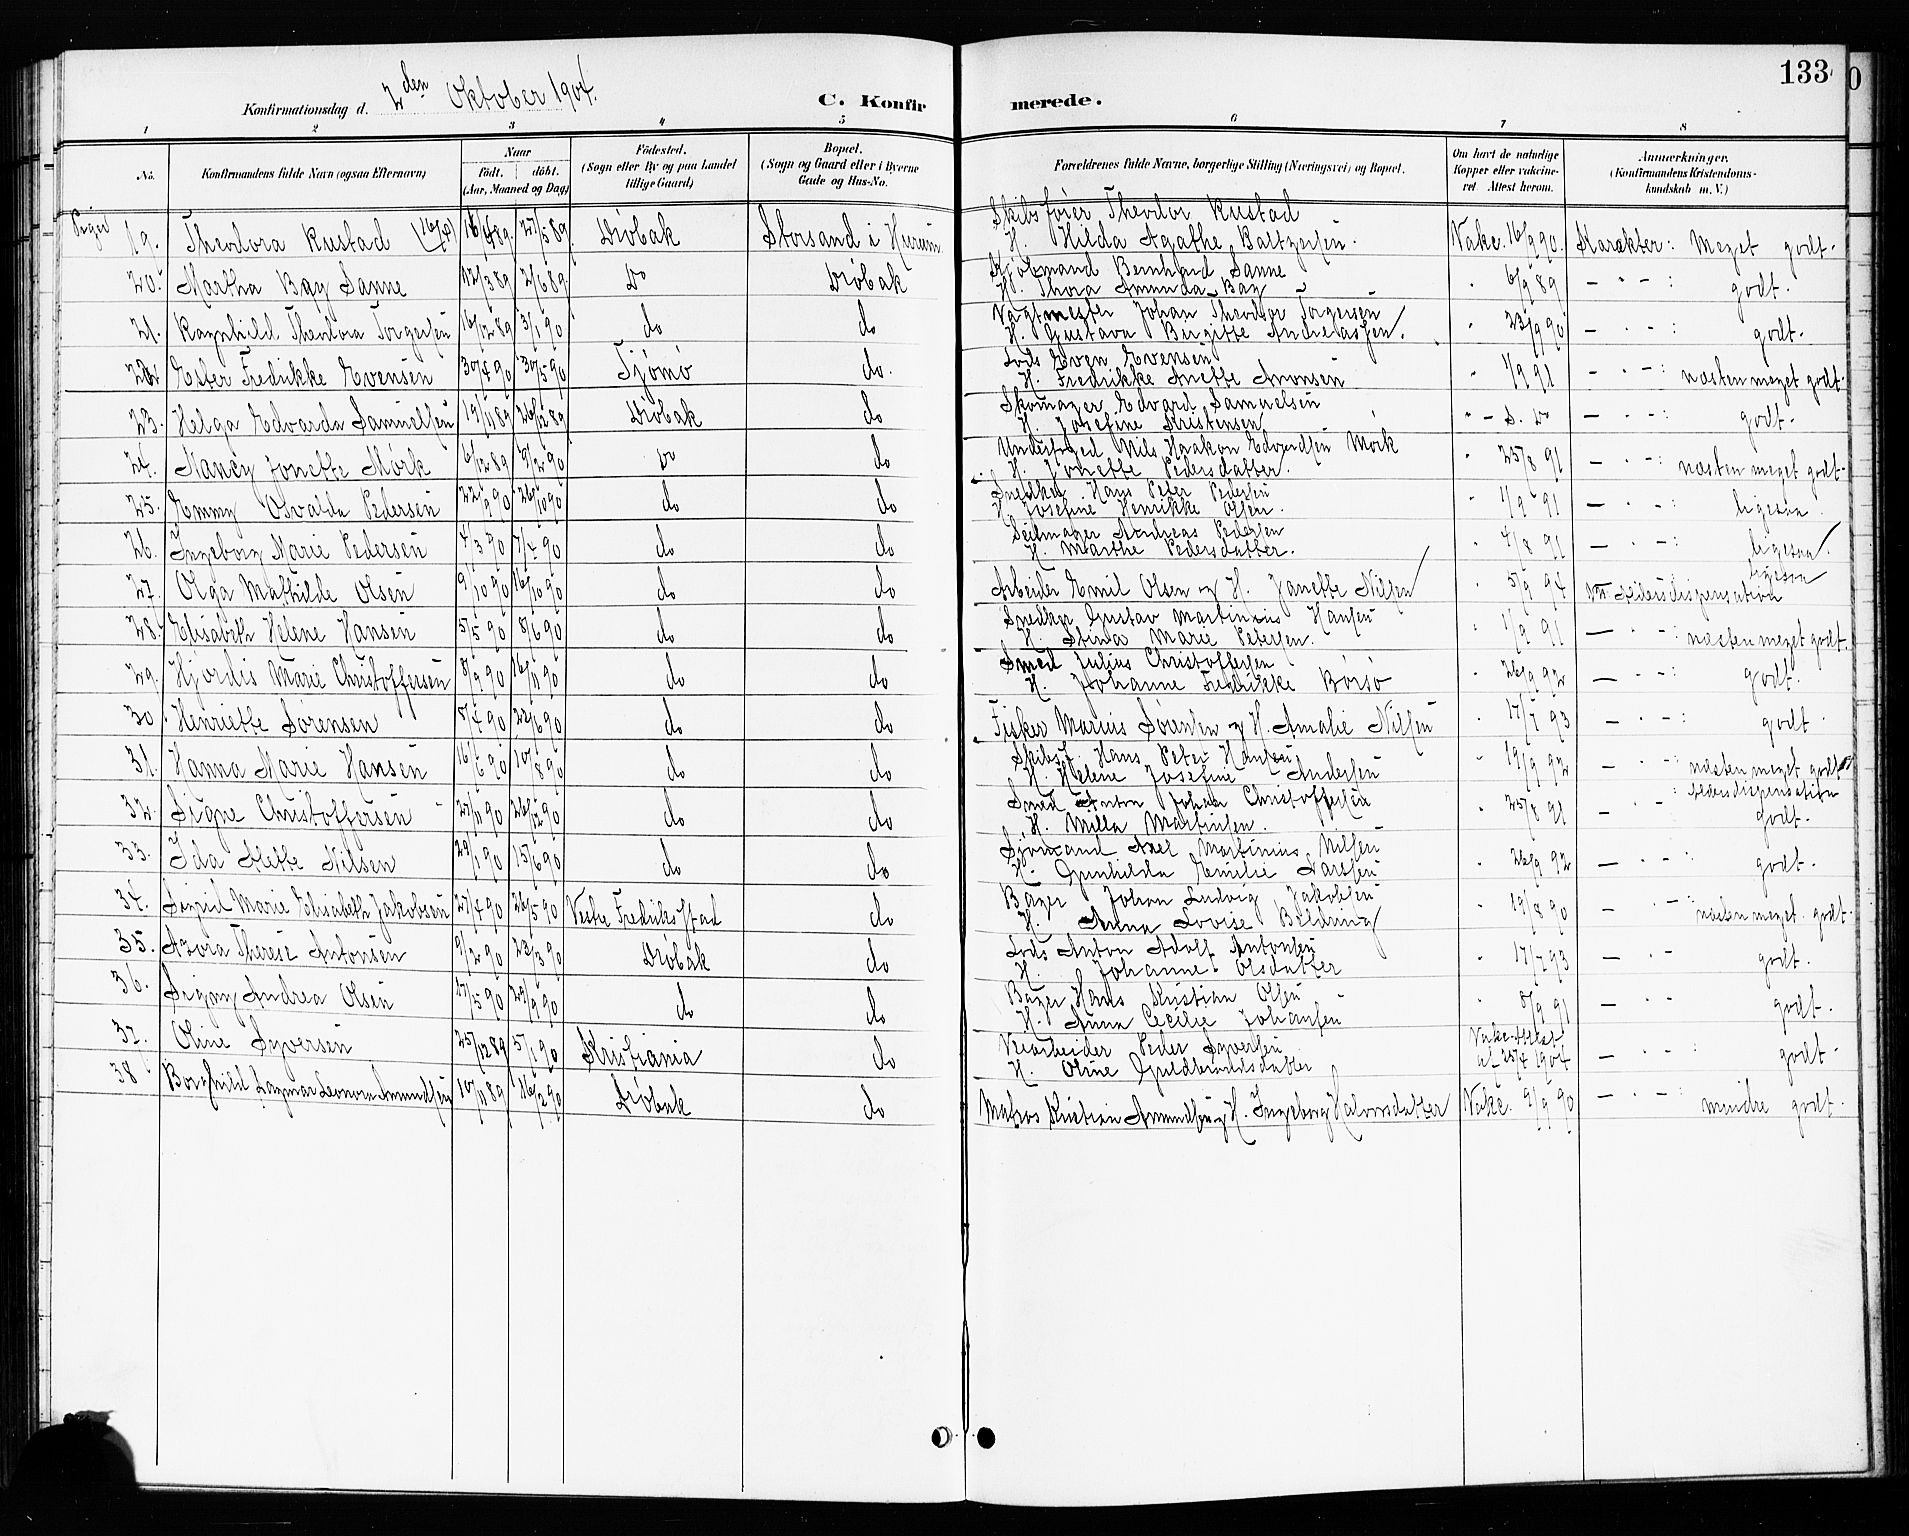 133
Konfirmationsdag d. 2den Oktober 1904.
C. Konfirmerede.
1 2 3 4 5 6 7 8
No. Konfirmandens fulde Navn (ogsaa Efternavn) Naar født. døbt. (Aar, Maaned og Dag) Fødested. (Sogn eller By og paa Landet tillige Gaard) Bopæl. (Sogn og Gaard eller i Byerne Gade og Hus-No. Forældrenes fulde Navne, borgerlige Stilling (Næringsvei) og Bopæl. Om havt de naturlige Kopper eller vakcineret. Attest herom. Anmærkninger. (Konfirmandens Kristendomskundskab m. V.)
Piger
19. Theodora Rustad 16/4 89. 27/5 89. Drøbak Storsand i Hurum. Skibsfører Theodor Rustad
H. Hilda Agathe Baltzersen. Vakc. 16/9 90. Karakter: Meget godt.
20. Martha Bay Sanne 12/3 89 2/6 89 Do Drøbak Kjøbmand Bernhard Sanne
H. Thora Amunda Bay " 6/9 89 — " — : godt.
21. Ragnhild Theodora Torgersen 16/12 89 3/1 90 do do Vagtmester Johan Theodor Torgersen
H. Gustava Birgitte Andreassen. " 23/9 90 — " — : godt.
22 Ester Fredrikke Evensen 30/4 90 30/5 90 Tjømø do. Lods Even Evensen
H. Fredrikke Anette Aronsen " 1/9 91 — " — : næsten meget godt.
23. Helga Edvarda Samuelsen 19/11 89 26/12 89 Drøbak do Skomager Edvard Samuelsen
H. Josefine Kristensen " — S. D. — " — : godt.
24. Nancy Jonette Mørk 6/12 89 2/2 90 Do do Underfoged Nils Haakon Edvardsen Mørk
H. Jonette Pedersdatter. " 25/8 91 — " — : næsten meget godt.
25. Emmy Osvalda Pedersen 22/9 90 26/10 90 do do Snedker Hans Peter Pedersen
H. Josefine Henrikke Olsen. " 1/9 91 — " — : ligesaa.
26. Ingeborg Marie Pedersen 4/3 90 7/4 90 do do Seilmager Andreas Pedersen
H. Marthe Pedersdatter. " 4/8 91 — " — : ligesaa.
27. Olga Mathilde Olsen 9/10 90 16/10 90 do do Arbeider Emil Olsen og H. Janette Nilsen " 5/9 94 ligesaa
Aldersdispensation
28. Elisabeth Helene Hansen 5/5 90 8/6 90 do do Snedker Gustav Martinius Hansen
H. Stina Marie Petersen. " 1/9 91 — " — : næsten meget godt.
29. Hjørdis Marie Christoffersen 8/9 90 16/11 90 do do Smed Julius Christoffersen
H. Johanne Fredrikke Børsø " 26/9 92 — " — : godt.
30 Henriette Sørensen 5/4 90 22/6 90 do do Fisker Marius Sørensen og H. Amalie Nilsen " 17/7 93 — " — : godt.
31. Hanna Marie Hansen 16/6 90 10/8 90 do do Skibsf. Hans Peter Hansen
H. Helene Josefine Andersen " 19/9 92 — " — : næsten meget godt
32. Signe Christoffersen 27/11 90 26/12 90 do do Smed Anton Johan Christoffersen
H. Milla Martinsen. " 25/8 91 — " — : Aldersdispensation
godt.
33. Ida Mette Nilsen 29/1 90 15/6 90 do do Sjømand Axel Martinius Nilsen
H. Gunhilda Emilie Larsen " 26/9 92 — " — : godt.
34. Sigrid Marie Elisabeth Jakobsen 27/4 90 26/5 90 Vestre Fredriksstad do Bager Johan Ludvig Jakobsen
H. Anna Lovise Beldring " 19/8 90 — " — : næsten meget godt.
35. Azora Therese Antonsen 9/2 90 23/3 90 Drøbak do Lods Anton Adolf Antonsen
H. Johanne Olsdatter " 17/7 93 — " — godt.
36. Signy Andrea Olsen 17/5 90 29/9 90 do do Bager Hans Kristian Olsen
H. Anna Cecilie Johansen " 8/9 91 — " — godt.
37. Oline Syversen 25/12 89 5/1 90 Kristiania do Veiarbeider Peder Syversen
H. Oline Guldbrandsdatter Vakc. Attest
af 25/4 1904 — " — godt.
38 Borghild Dagmar Leonora Amundsen 10/11 89 16/2 90 Drøbak do Matros Kristian Amundsen og H. Ingeborg Halvorsdatter Vakc. 9/9 90 — " — : mindre godt.